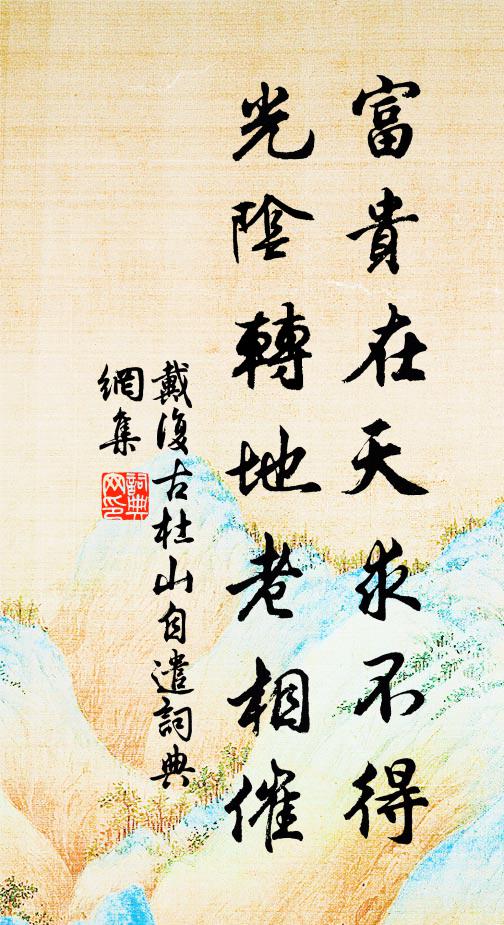 富貴在天求不得
光陰轉地老相催
戴復古杜山自遣詞典
網集
詞典
网印